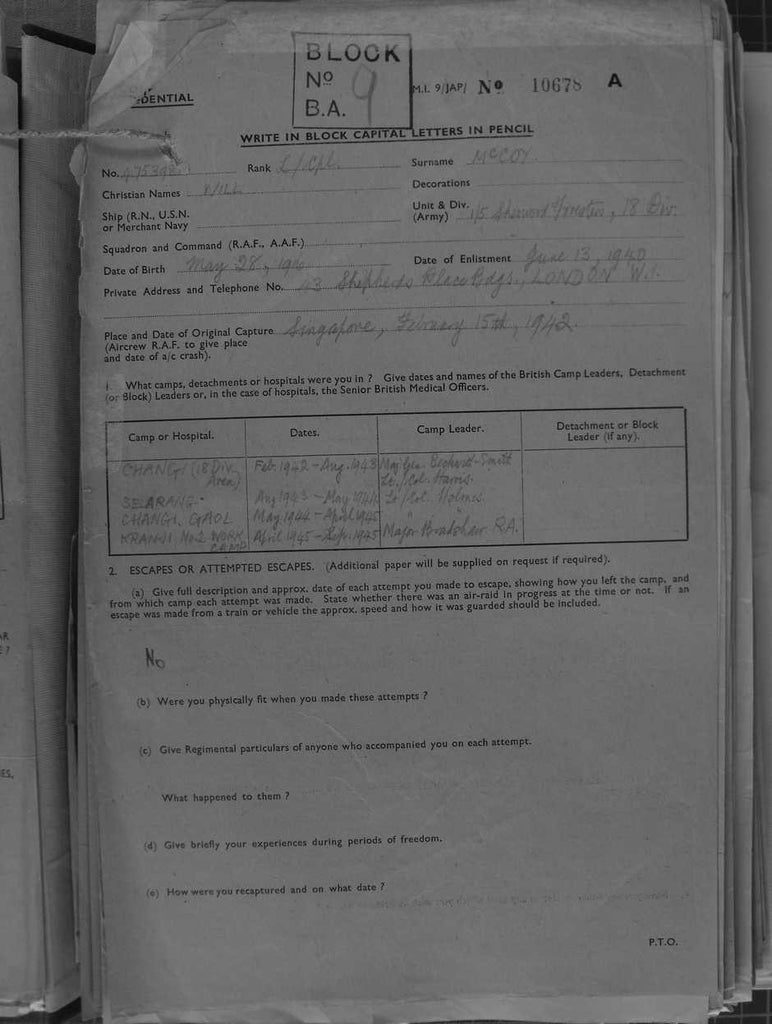 BLOCK
No 9
B.A.
DENTIAL
M.I. 9/JAP/ No 10678 A
WRITE IN BLOCK CAPITAL LETTERS IN PENCIL
No. Rank L/Cpl. Surname McCOY.
Christian Names WILL Decorations
Ship (R.N., U.S.N. or Merchant Navy
Unit & Div. (Army) 1/5 Sherwood Foresters, 18 Div.
Squadron and Command (R.A.F., A.A.F.)
Date of Birth May 28, Date of Enlistment June 13, 1940
Private Address and Telephone No. Shepherds Place Bdgs., LONDON W.1.
Place and Date of Original Capture Singapore, February 15th, 1942.
(Aircrew R.A.F. to give place
and date of a/c crash).
1. What camps, detachments or hospitals were you in ? Give dates and names of the British Camp Leaders, Detachment
(or Block) Leaders or, in the case of hospitals, the Senior British Medical Officers.
Camp or Hospital. Dates. Camp Leader. Detachment or Block Leader (if any).
CHANGI (18 DIV. Area) Feb. 1942 - Aug. 1943 Maj. Gen. Beckwith-Smith
Lt./Col. Harris.
SELARANG Aug 1943 - May 1944 Lt/Col. Holmes.
CHANGI GAOL May 1944 - April 1945 " "
KRANJI No 2 WORK CAMP April 1945 - Sep. 1945 Major Bradshaw R.A.
2. ESCAPES OR ATTEMPTED ESCAPES. (Additional paper will be supplied on request if required).
(a) Give full description and approx. date of each attempt you made to escape, showing how you left the camp, and
from which camp each attempt was made. State whether there was an air-raid in progress at the time or not. If an
escape was made from a train or vehicle the approx. speed and how it was guarded should be included.
No
(b) Were you physically fit when you made these attempts ?
(c) Give Regimental particulars of anyone who accompanied you on each attempt.
What happened to them ?
(d) Give briefly your experiences during periods of freedom.
(e) How were you recaptured and on what date ?
P.T.O.